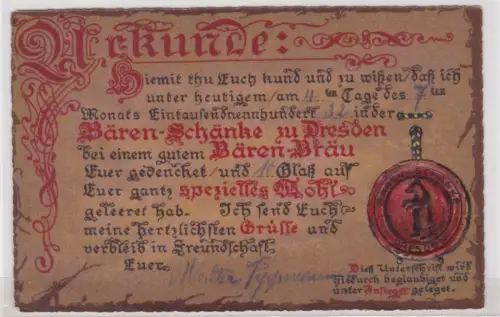 Urkunde:
Hiemit thu Euch kund und zu wißen/daß ich
unter heutigem/am 4 ten Tage des 7 tes
Monats Eintausendneunhundert 32 in der
Bären-Schänke zu Dresden
bei einem gutem Bären-Bräu
Euer gedencket/und 10 Glaß auf
Euer gantz spezielles Wohl
geleeret hab. Ich send Euch
meine hertzlichsten Grüsse und
verbleib in Freundschaft
Euer Walter
Dieß Unterschrift wird
hiedurch beglaubiget und
unter Insiegel geleget.